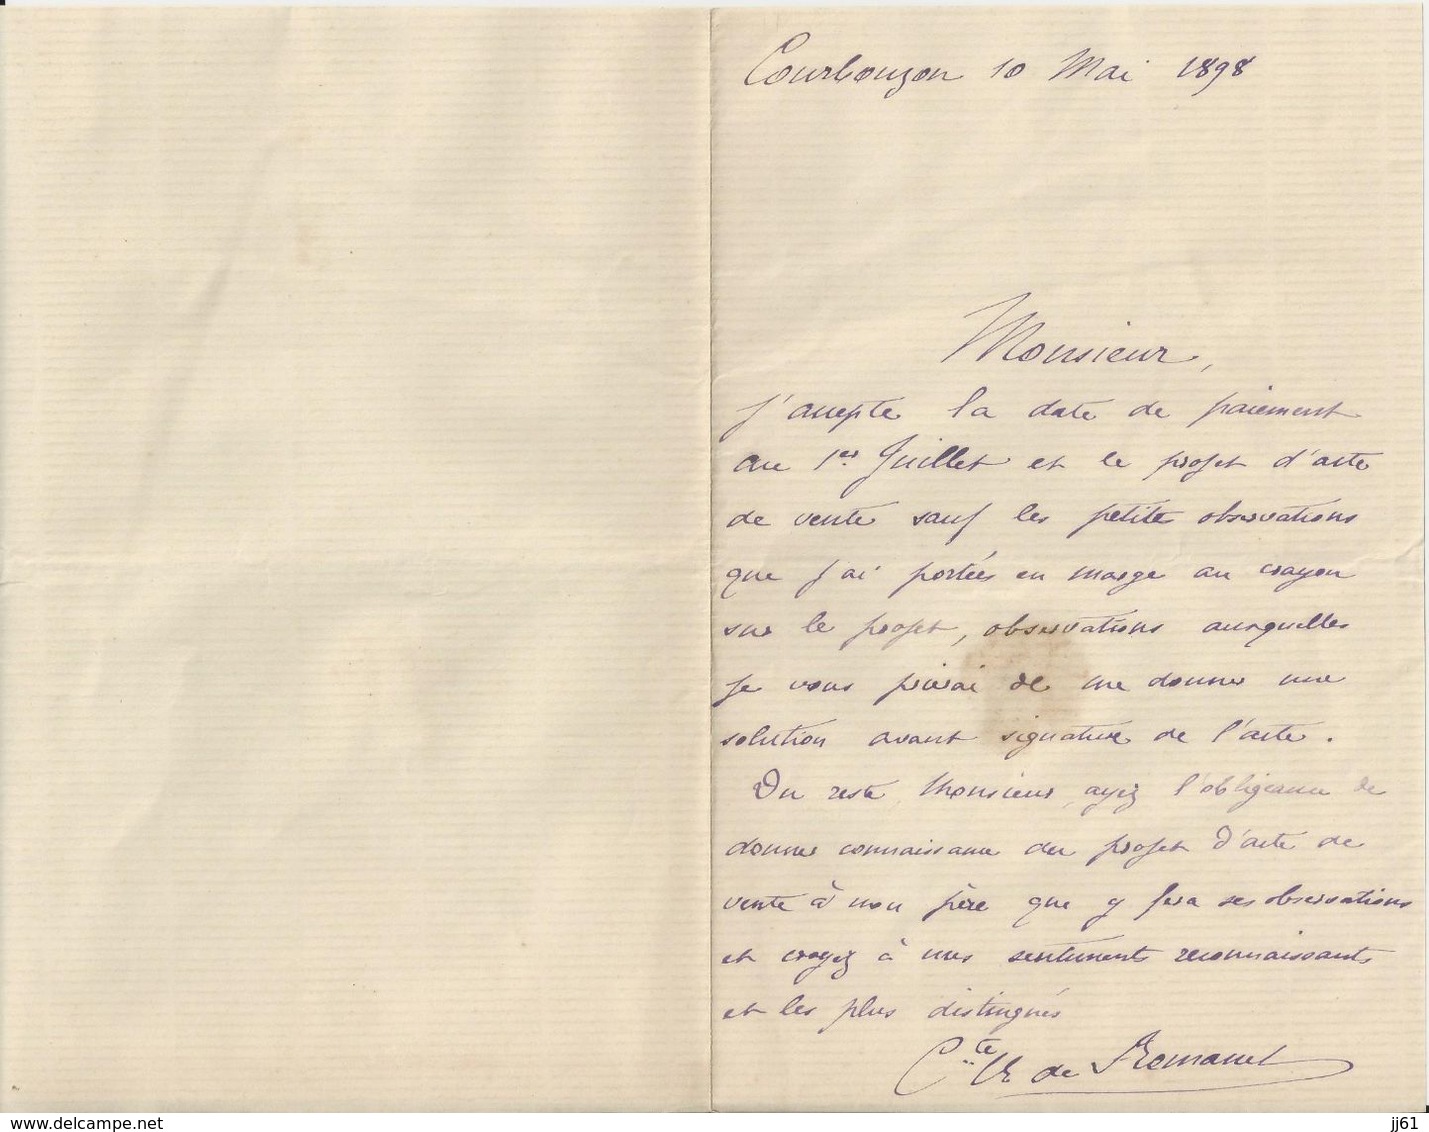 Courbouzon 10 Mai 1898
Monsieur,
J'accepte la date de paiement
au 1er Juillet et le projet d'acte
de vente sauf les petites observations
que j'ai portées en marge au crayon
sur le projet, observations auxquelles
je vous prierai de me donner une
solution avant signature de l'acte.
Du reste, Monsieur, ayez l'obligeance de
donner connaissance du projet d'acte de
vente à mon père que y fera ses observations
et croyez à mes sentiments reconnaissants
et les plus distingués
Cte de Romanet
www.delcampe.net
jj61